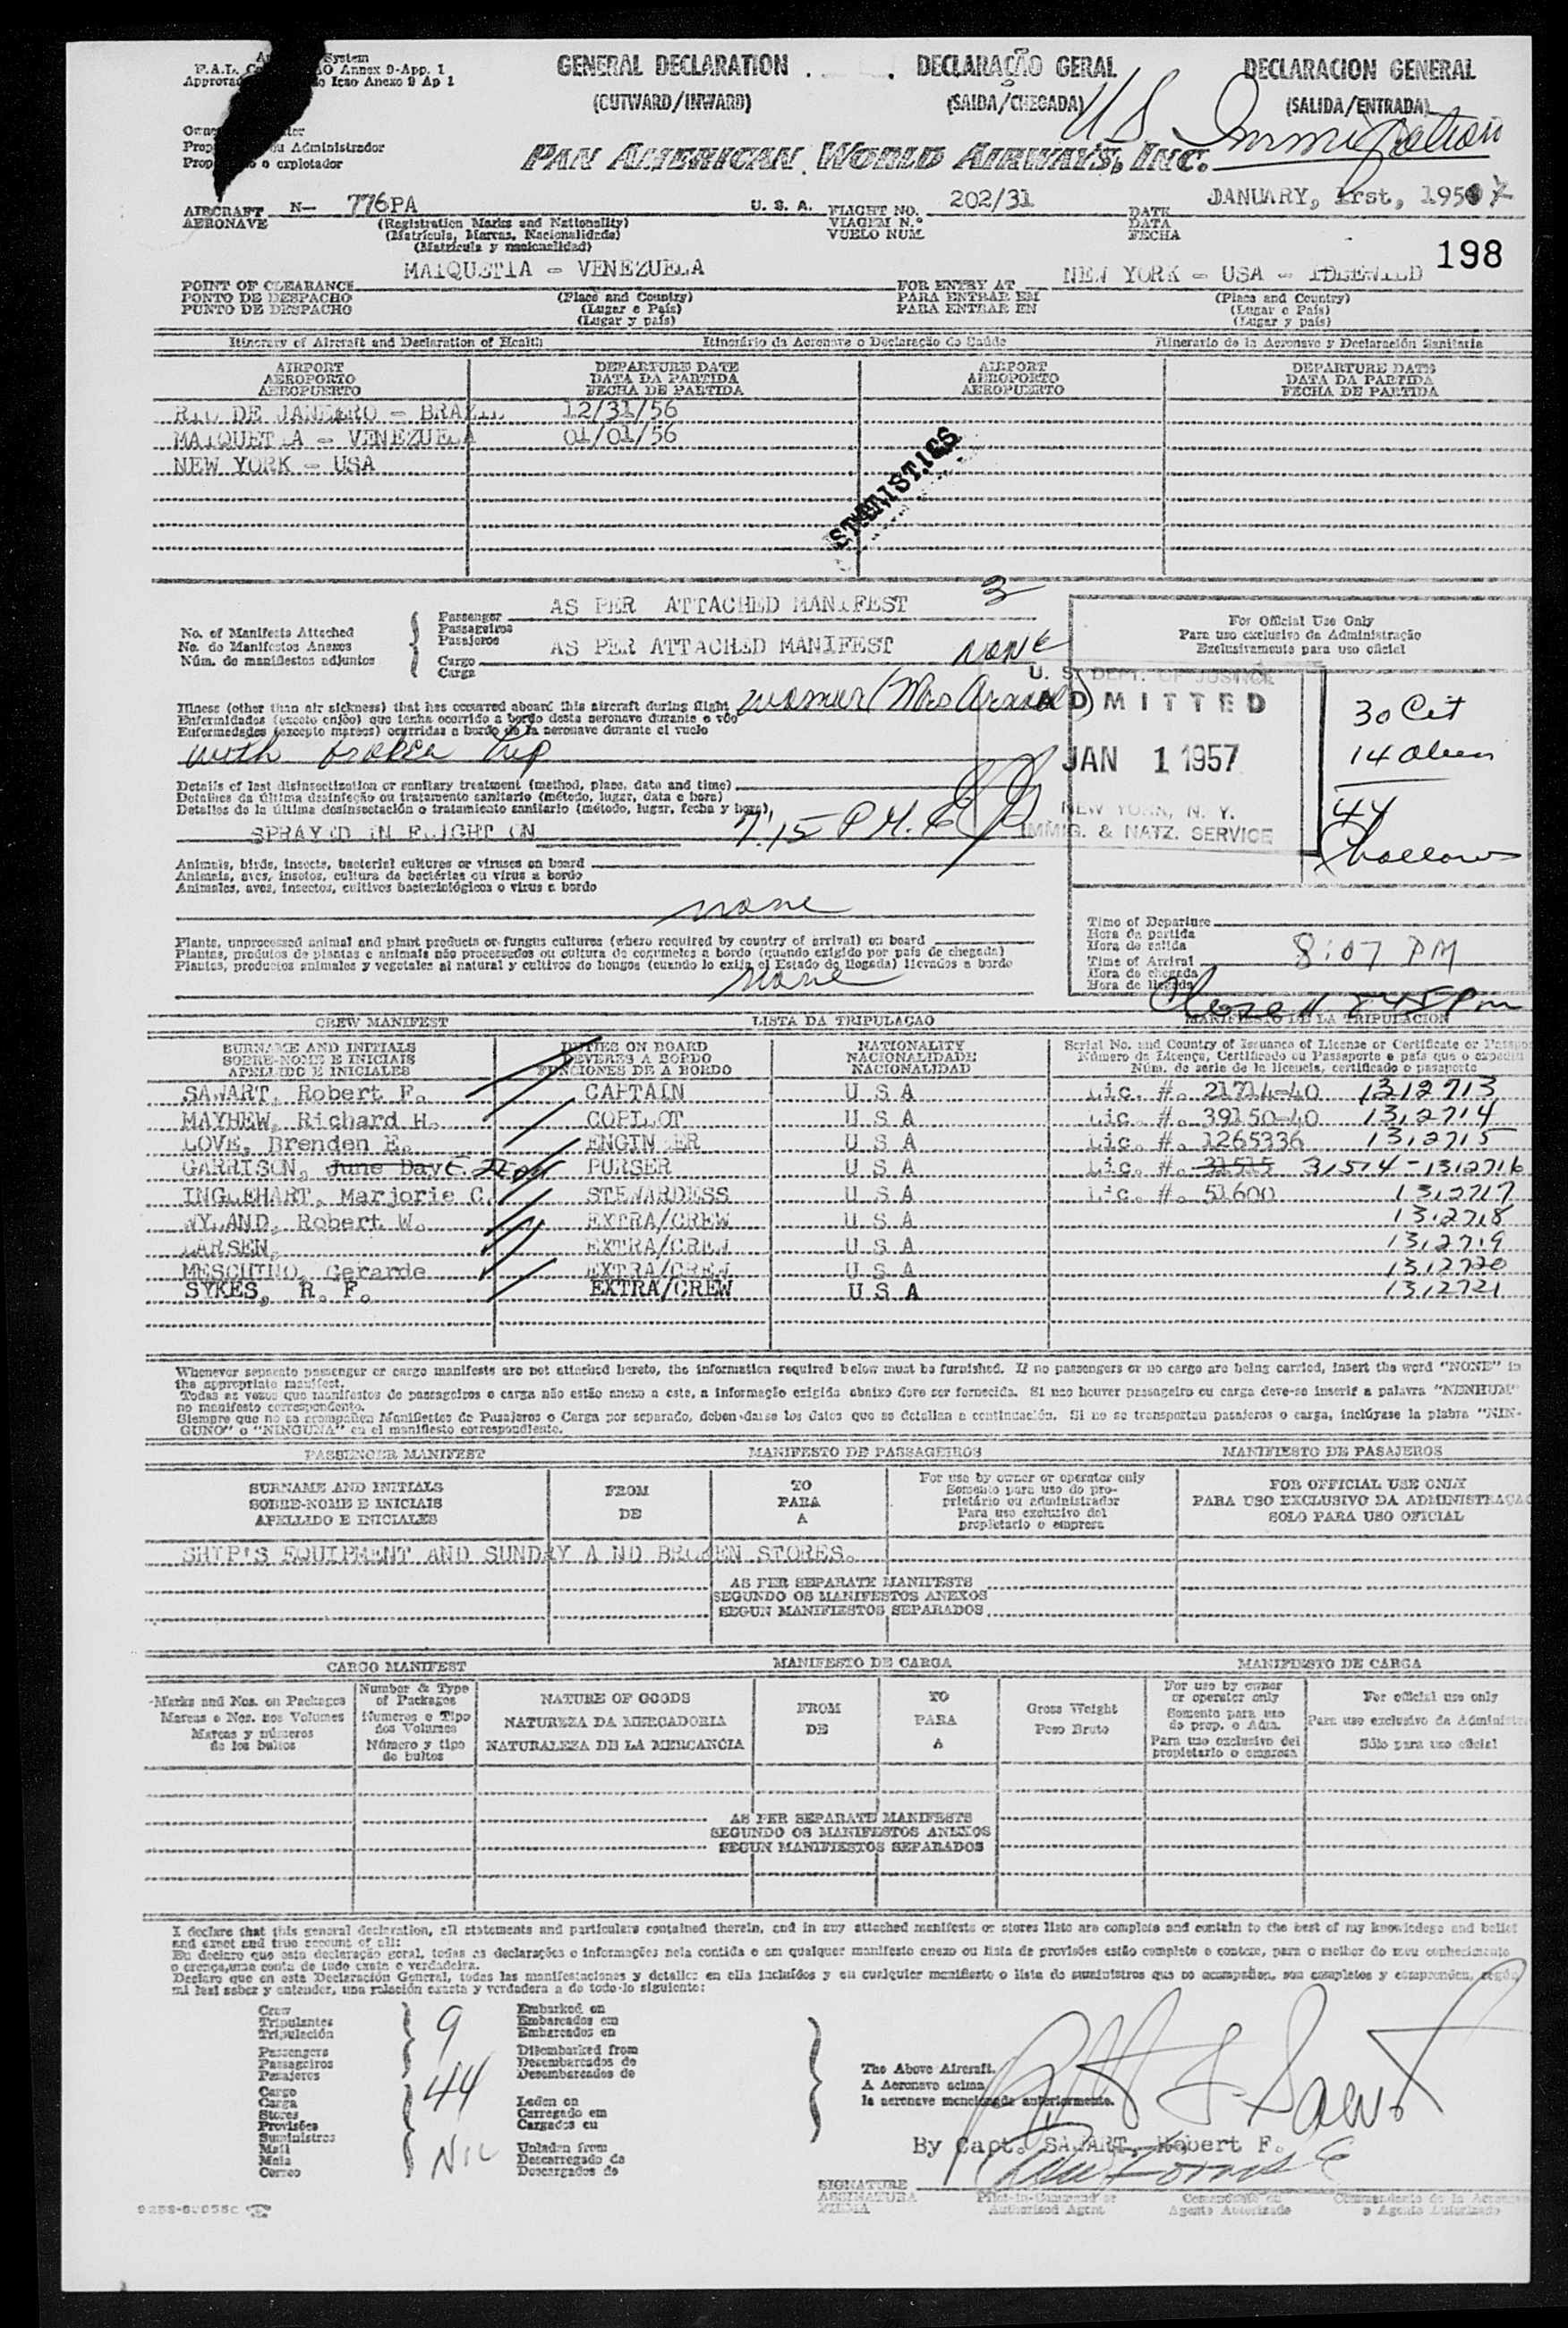 System
F.A.L. Annex 9-App. 1
Icao Anexo 9 Ap 1
GENERAL DECLARATION
(OUTWARD/INWARD)
DECLARAÇÃO GERAL
(SAIDA/CHEGADA)
DECLARACION GENERAL
(SALIDA/ENTRADA)
US Immigration
ou Administrador
o explotador
PAN AMERICAN WORLD AIRWAYS, INC.
AIRCRAFT N- 776PA U. S. A. FLIGHT NO. 202/31 DATE JANUARY, Irst, 1957
AERONAVE (Registration Marks and Nationality) VIAGEM N.º DATA
(Matrícula, Marcas, Nacionalidade) VUELO NUM. FECHA
(Matrícula y nacionalidad)
198
POINT OF CLEARANCE MAIQUETIA - VENEZUELA FOR ENTRY AT NEW YORK - USA - IDLEWILD
PONTO DE DESPACHO (Place and Country) PARA ENTRAR EM (Place and Country)
PUNTO DE DESPACHO (Lugar e País) PARA ENTRAR EN (Lugar e País)
(Lugar y país) (Lugar y país)
Itinerary of Aircraft and Declaration of Health Itinerário da Aeronave e Declaração de Saúde Itinerario de la Aeronave y Declaración Sanitaria
AIRPORT DEPARTURE DATE AIRPORT DEPARTURE DATE
AEROPORTO DATA DA PARTIDA AEROPORTO DATA DA PARTIDA
AEROPUERTO FECHA DE PARTIDA AEROPUERTO FECHA DE PARTIDA
RIO DE JANEERO - BRAZIL 12/31/56
MAIQUETIA - VENEZUELA 01/01/56
NEW YORK - USA
STATISTICS
No. of Manifests Attached Passenger AS PER ATTACHED MANIFEST 3
No. de Manifestos Anexos Passageiros
Núm. de manifiestos adjuntos Pasajeros
Cargo AS PER ATTACHED MANIFEST NONE
Carga
For Official Use Only
Para uso exclusivo da Administração
Exclusivamente para uso oficial
U. S. DEPT. OF JUSTICE
ADMITTED
JAN 1 1957
NEW YORK, N. Y.
IMMIG. & NATZ. SERVICE
30 Cit
14 Alien
44
Illness (other than air sickness) that has occurred aboard this aircraft during flight
Enfermidades (exceto enjôo) que tenha ocorrido a bordo desta aeronave durante o vôo
Enfermedades (excepto mareos) ocurridas a bordo de la aeronave durante el vuelo
with broken hip
Details of last disinsectization or sanitary treatment (method, place, date and time)
Detalhes da última desinfeção ou tratamento sanitario (método, lugar, data e hora)
Detalles de la última desinsectación o tratamiento sanitario (método, lugar, fecha y hora)
SPRAYED IN FLIGHT ON 7:15 P.M.
Animals, birds, insects, bacterial cultures or viruses on board
Animais, aves, insetos, cultura de bactérias ou virus a bordo
Animales, aves, insectos, cultivos bacteriológicos o virus a bordo
none
Plants, unprocessed animal and plant products or fungus cultures (where required by country of arrival) on board
Plantas, produtos de plantas e animais não processados ou cultura de cogumelos a bordo (quando exigido por país de chegada)
Plantas, productos animales y vegetales al natural y cultivos de hongos (cuando lo exija el Estado de llegada) llevados a bordo
none
Time of Departure
Hora da partida
Hora de salida
Time of Arrival 8:07 PM
Hora de chegada
Hora de llegada
Closed 845 pm
CREW MANIFEST LISTA DA TRIPULAÇAO MANIFIESTO DE LA TRIPULACION
SURNAME AND INITIALS DUTIES ON BOARD NATIONALITY Serial No. and Country of Issuance of License or Certificate or
SOBRE-NOME E INICIAIS DEVERES A BORDO NACIONALIDADE Número da Licença, Certificado ou Passaporte e país que o
APELLIDO E INICIALES FUNCIONES DE A BORDO NACIONALIDAD Núm. de serie de la licencia, certificado o pasaporte
SAWART, Robert F. CAPTAIN U S A Lic. #. 21714-40 1312713
MAYHEW, Richard H. COPILOT U S A Lic. #. 39150-40 1312714
LOVE, Brenden E. ENGINEER U S A Lic. #. 1265336 1312715
GARRISON, June Day PURSER U S A Lic. #. 31515 31514 - 1312716
INGLEHART, Marjorie C. STEWARDESS U S A Lic. #. 51600 1312717
WYLAND, Robert W. EXTRA/CREW U S A 1312718
LARSEN, EXTRA/CREW U S A 1312719
MESCHINO, Gerarde EXTRA/CREW U S A 1312720
SYKES, R. F. EXTRA/CREW U S A 1312721
Whenever separate passenger or cargo manifests are not attached hereto, the information required below must be furnished. If no passengers or no cargo are being carried, insert the word "NONE" in
the appropriate manifest.
Todas as vezes que manifestos de passageiros e carga não estão anexo a este, a informação exigida abaixo deve ser fornecida. Si nao houver passageiro ou carga deve-se inserir a palavra "NENHUM"
no manifesto correspondente.
Siempre que no se acompañen Manifiestos de Pasajeros o Carga por separado, deben darse los datos que se detallan a continuación. Si no se transportan pasajeros o carga, inclúyase la plabra "NIN-
GUNO" o "NINGUNA" en el manifiesto correspondiente.
PASSENGER MANIFEST MANIFESTO DE PASSAGEIROS MANIFIESTO DE PASAJEROS
SURNAME AND INITIALS FROM TO For use by owner or operator only FOR OFFICIAL USE ONLY
SOBRE-NOME E INICIAIS DE PARA Somente para uso do pro- PARA USO EXCLUSIVO DA ADMINISTRAÇAO
APELLIDO E INICIALES A prietário ou administrador SOLO PARA USO OFICIAL
Para uso exclusivo del
propietario o empresa
SHIP'S EQUIPMENT AND SUNDAY A ND BROKEN STORES.
AS PER SEPARATE MANIFESTS
SEGUNDO OS MANIFESTOS ANEXOS
SEGUN MANIFIESTOS SEPARADOS
CARGO MANIFEST MANIFESTO DE CARGA MANIFIESTO DE CARGA
Marks and Nos. on Packages Number & Type of Packages NATURE OF GOODS FROM TO Gross Weight For use by owner or operator only For official use only
Marcas e Nos. nos Volumes Numeros e Tipo dos Volumes NATUREZA DA MERCADORIA DE PARA Peso Bruto Somente para uso do prop. e Adm. Para uso exclusivo da
Marcas y números de los bultos Número y tipo de bultos NATURALEZA DE LA MERCANCIA A Para uso exclusivo del propietario o empresa Sólo para uso oficial
AS PER SEPARATE MANIFESTS
SEGUNDO OS MANIFESTOS ANEXOS
SEGUN MANIFIESTOS SEPARADOS
I declare that this general declaration, all statements and particulars contained therein, and in any attached manifests or stores lists are complete and contain to the best of my knowledge and belief
and exact and true account of all:
Eu declaro que esta declaração geral, todas as declarações e informações nela contida e em qualquer manifesto anexo ou lista de provisões estão completo e contem, para o melhor do meu conhecimento
e crença,uma conta de tudo exato e verdadeira.
Declaro que en esta Declaración General, todas las manifestaciones y detalles en ella incluídos y en cualquier manifiesto o lista de suministros que se acompañen, son completos y comprenden, según
mi leal saber y entender, una relación exacta y verdadera a de todo-lo siguiente:
Crew 9 Embarked on
Tripulantes Embarcados em
Tripulación Embarcados en
Passengers 44 Disembarked from
Passageiros Desembarcados de
Pasajeros Desembarcados de
Cargo
Carga Laden on
Stores Carregado em
Provisões Cargados en
Suministros
Mail NIL Unladen from
Mala Descarregado da
Correo Descargados de
The Above Aircraft.
A Aeronave acima
la aeronave mencionada anteriormente.
By Capt. SAWART, Robert F.
SIGNATURE Pilot-in-Command or Comandante ou Commandante de la
ASSINATURA Authorized Agent Agente Autorizado o Agente Autorizado
FIRMA